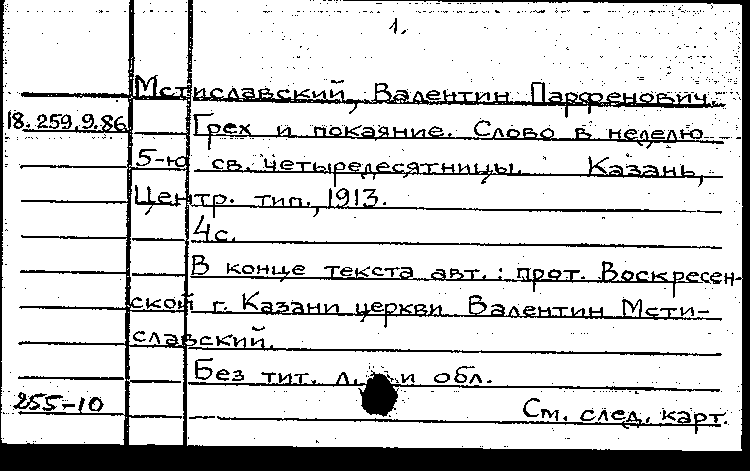 1.
Мстиславский, Валентин Парфенович.
18.259.9.86 Грех и покаяние. Слово в неделю
5-ю св. четыредесятницы. Казань,
Центр. тип., 1913.
4с.
В конце текста авт.: прот. Воскресен-
ской г. Казани церкви Валентин Мсти-
славский.
Без тит. л. и обл.
255-10 См. след. карт.